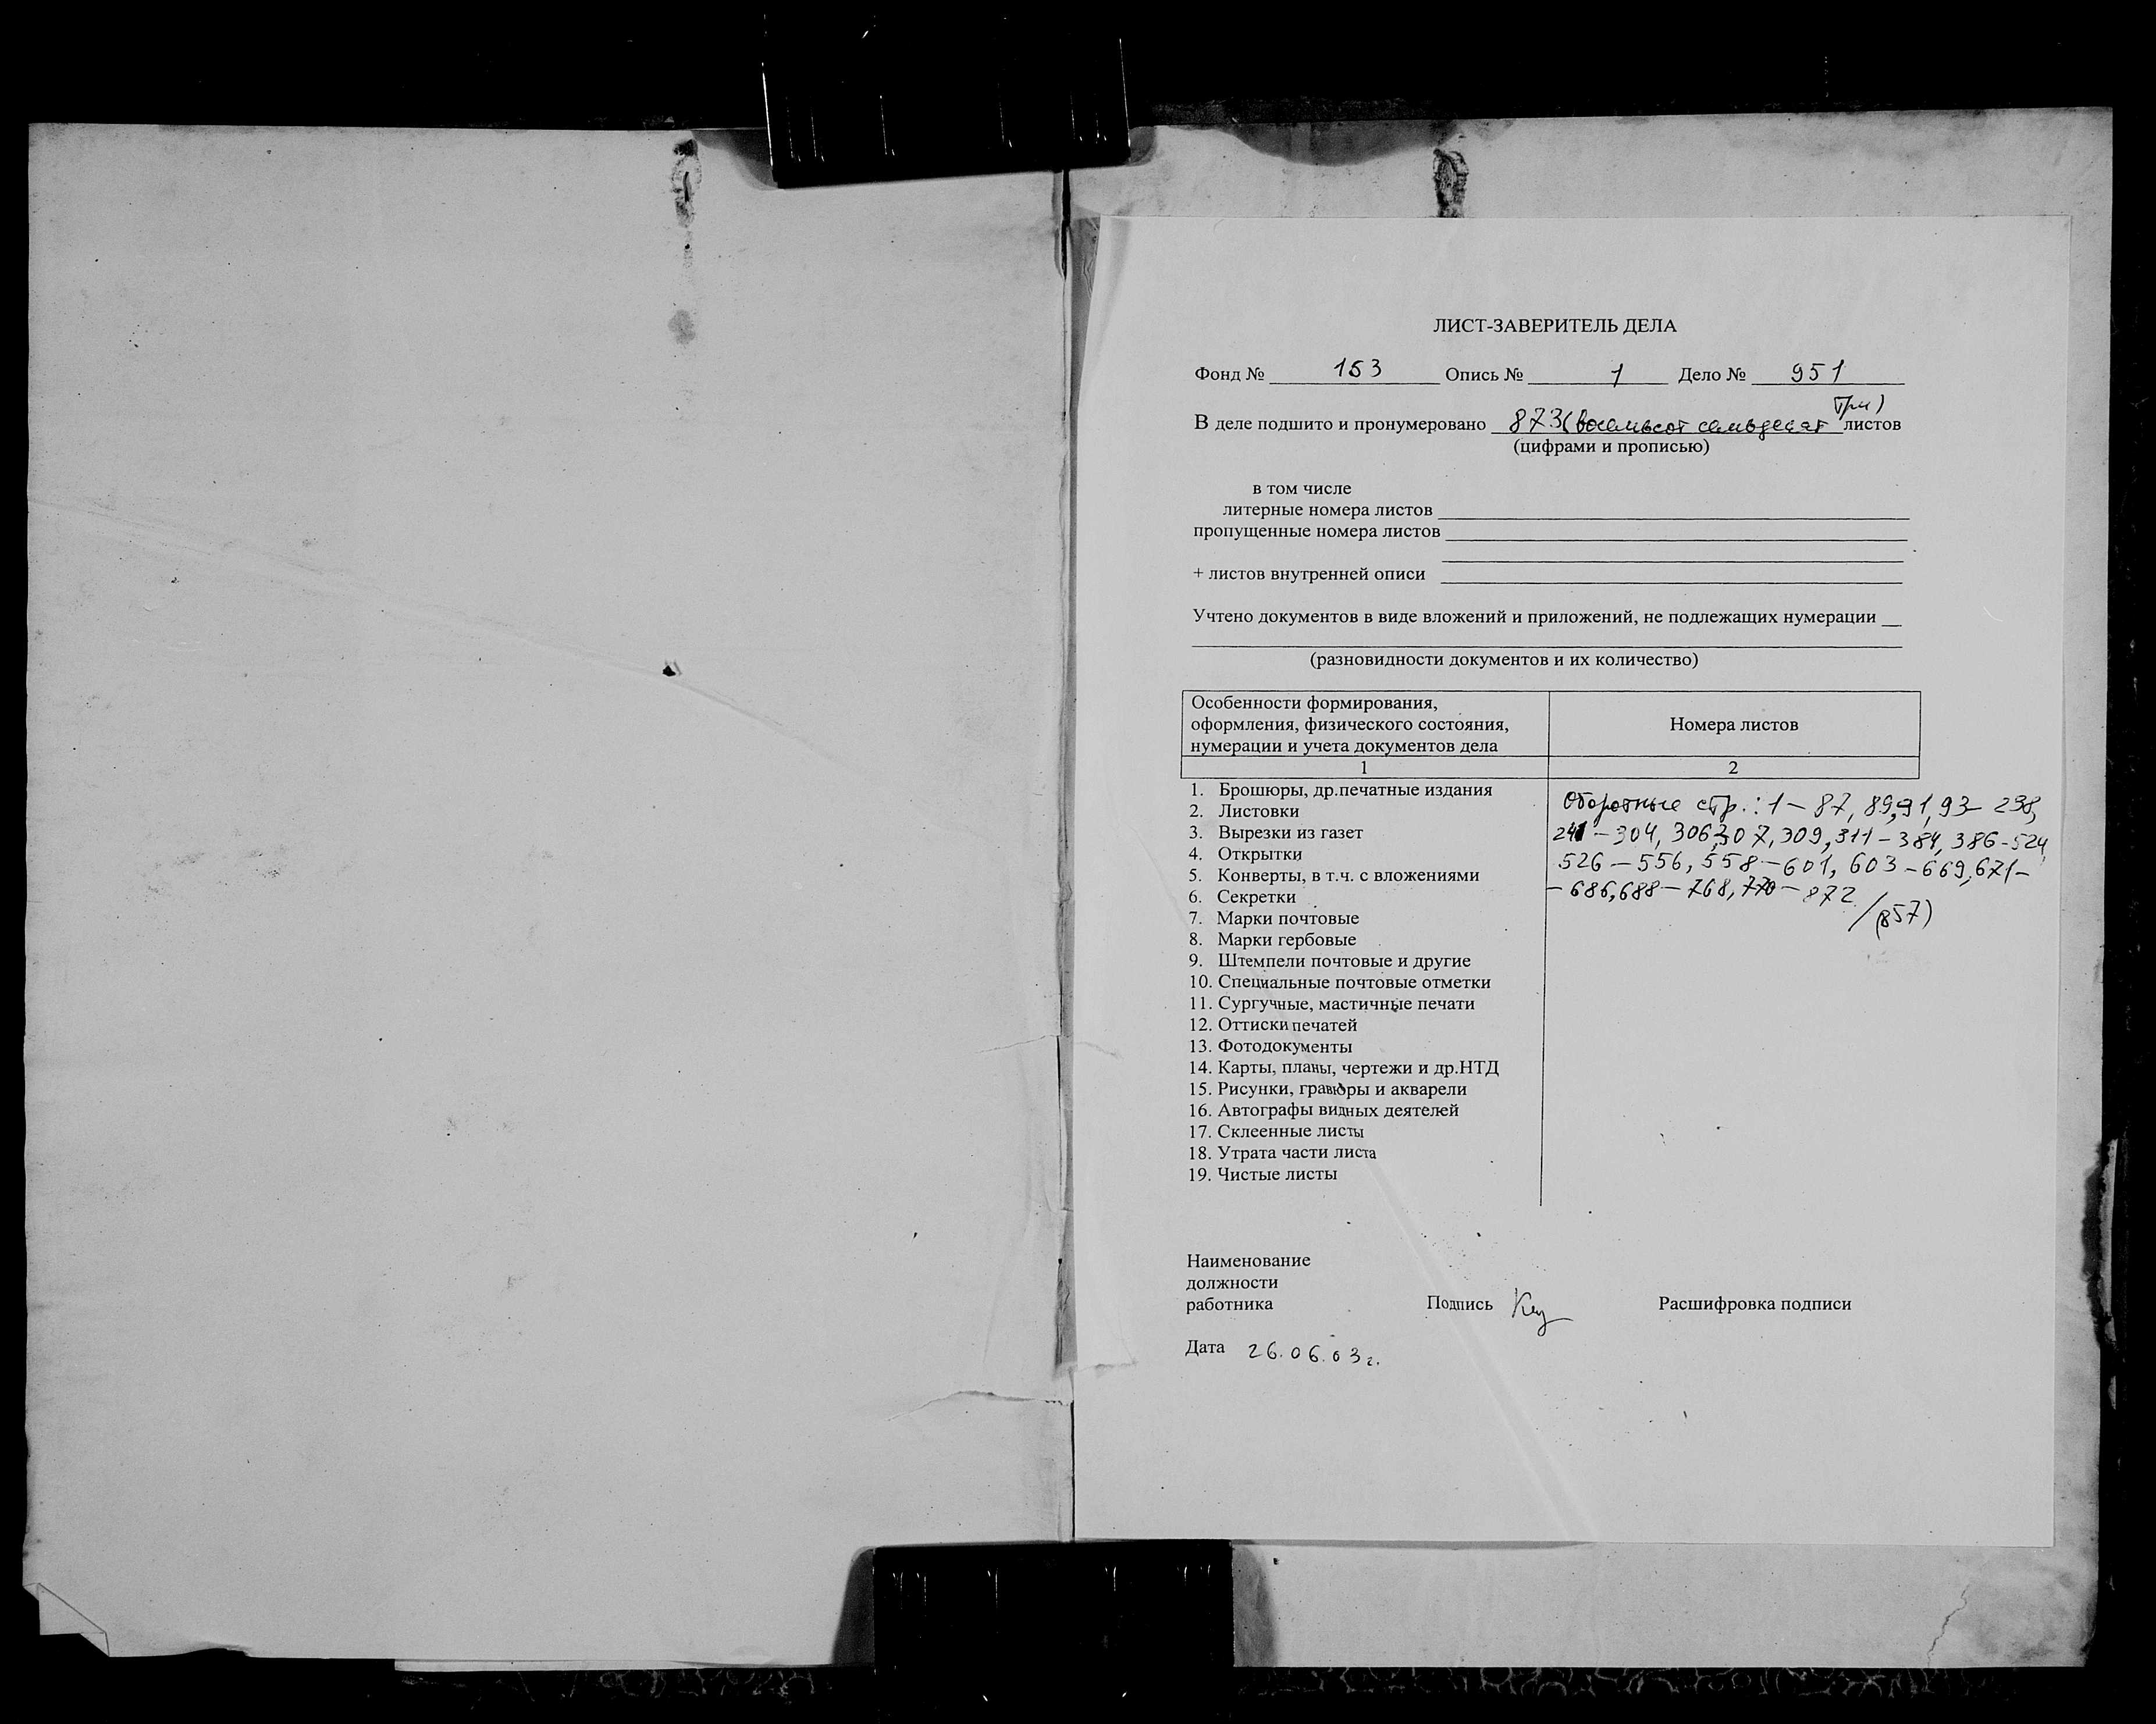 ЛИСТ-ЗАВЕРИТЕЛЬ ДЕЛА
Фонд № 153 Опись № 1 Дело № 951
три)
В деле подшито и пронумеровано 873 (восемьсот семьдесят листов
(цифрами и прописью)
в том числе
литерные номера листов
пропущенные номера листов
+ листов внутренней описи
Учтено документов в виде вложений и приложений, не подлежащих нумерации
(разновидности документов и их количество)
Особенности формирования,
оформления, физического состояния,
нумерации и учета документов дела
Номера листов
1 2
1. Брошюры, др.печатные издания
2. Листовки
3. Вырезки из газет
4. Открытки
5. Конверты, в т.ч. с вложениями
6. Секретки
7. Марки почтовые
8. Марки гербовые
9. Штемпели почтовые и другие
10. Специальные почтовые отметки
11. Сургучные, мастичные печати
12. Оттиски печатей
13. Фотодокументы
14. Карты, планы, чертежи и др.НТД
15. Рисунки, гравюры и акварели
16. Автографы видных деятелей
17. Склеенные листы
18. Утрата части листа
19. Чистые листы
Оборотные стр.: 1 – 87, 89, 91, 93 – 238,
241 – 304, 306, 307, 309, 311 – 384, 386 - 524,
526 – 556, 558 – 601, 603 – 669, 671 –
– 686, 688 – 768, 770 – 872
/(857)
Наименование
должности
работника Подпись Расшифровка подписи
Дата 26.06.03 г.